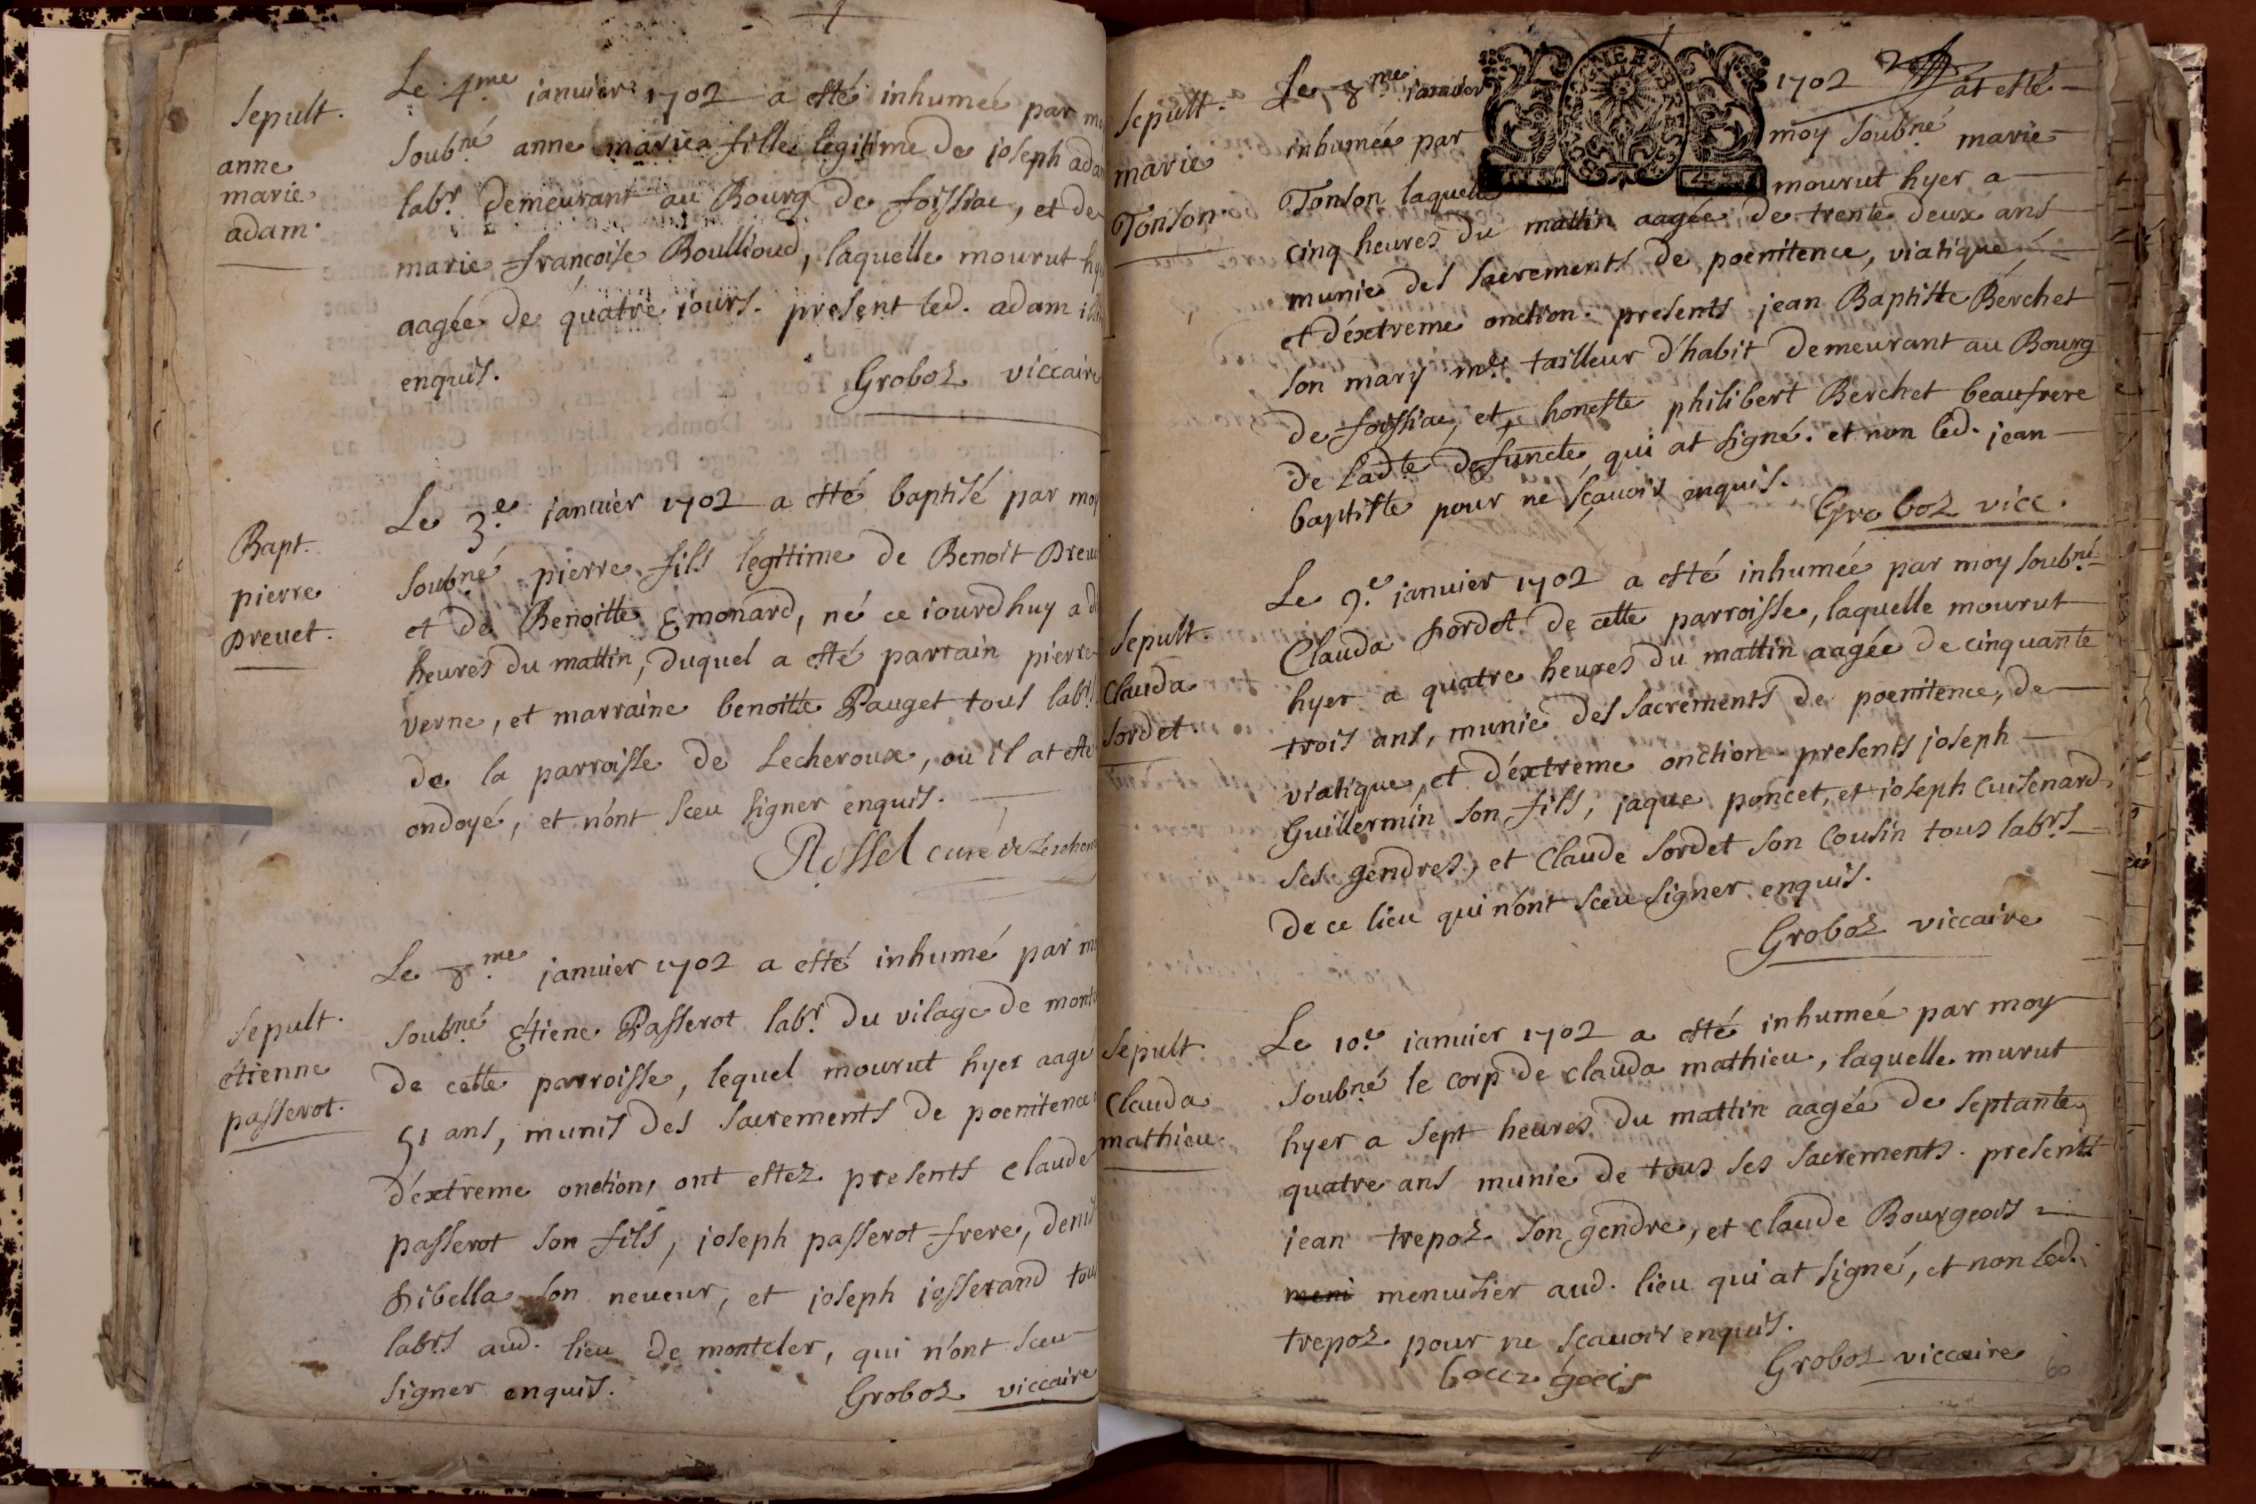 Sepult.
anne
marie
adam.
Le 4.me ianuier 1702 a esté inhumée par
soub.né anne maria fille legitime de joseph
lab.r demeurant au Bourg de foissiac, et de
marie francoise Boullioud, laquelle mourut
aagée de quatre iours. present led. adam
enquis.
Groboz viccaire
Bapt.
pierre
Dreuet.
Le 3.e januier 1702 a esté baptisé par moy
soub.né pierre fils legitime de Benoit
et de Benoitte Emonard, né ce iourdhuy a
heures du mattin, duquel a esté parrain pierre
verne, et marraine benoitte Pauget tous lab.rs
de la parroisse de Lecheroux, ou il at esté
ondoyé, et n'ont sceu signer enquis.
Rossel curé de
Sepult.
étienne
passerot.
Le 8.me januier 1702 a esté inhumé par
soub.né Etiene Passerot lab.r du vilage de
de cette parroisse, lequel mourut hyer aagé
51 ans, munis des sacrements de poenitence
d'extreme onction, ont estez presents claude
passerot son fils, joseph passerot frere, denis
Sibella son neueur, et joseph josserand tous
lab.rs aud. lieu de montcler, qui n'ont sceu
signer enquis.
Groboz viccaire
Sepult.
marie
Tonson
Le 8.me januier 1702 at esté
inhumée par moy soub.né marie
Tonson laquelle mourut hyer a
cinq heures du mattin aagée de trente deux ans
munie des sacrements de poenitence, viatique,
et d'éxtreme onction. presents jean Baptiste Bérchet
son mary m.e tailleur d'habit demeurant au Bourg
de foissiac, et honeste philibert Berchet beaufrere
de lad.te defuncte, qui at signé. et non led. jean
baptiste pour ne scauoir enquis.
Groboz vicc.
Sepult.
Clauda
Sordet.
Le 9.e januier 1702 a esté inhumée par moy soub.né
Clauda Sordet de cette parroisse, laquelle mourut
hyer a quatre heures du mattin aagée de cinquante
trois ans, munie des sacrements de poenitence, de
viatique, et d'éxtreme onction presents joseph
Guillermin son fils, jaque poncet, et joseph Cuisenard
ses gendres, et Claude Sordet son Cousin tous lab.rs
de ce lieu qui n'ont sceu signer enquis.
Groboz viccaire
Sepult.
Clauda
mathieu
Le 10.e ianuier 1702 a esté inhumée par moy
soub.né le corp de clauda mathieu, laquelle murut
hyer a sept heures du mattin aagée de septante
quatre ans munie de tous ses sacrements. presents
jean trepoz son gendre, et claude Bourgeois
meni menuisier aud. lieu qui at signé, et non led.
trepoz pour ne scauoir enquis.
bourgois
Groboz viccaire
60